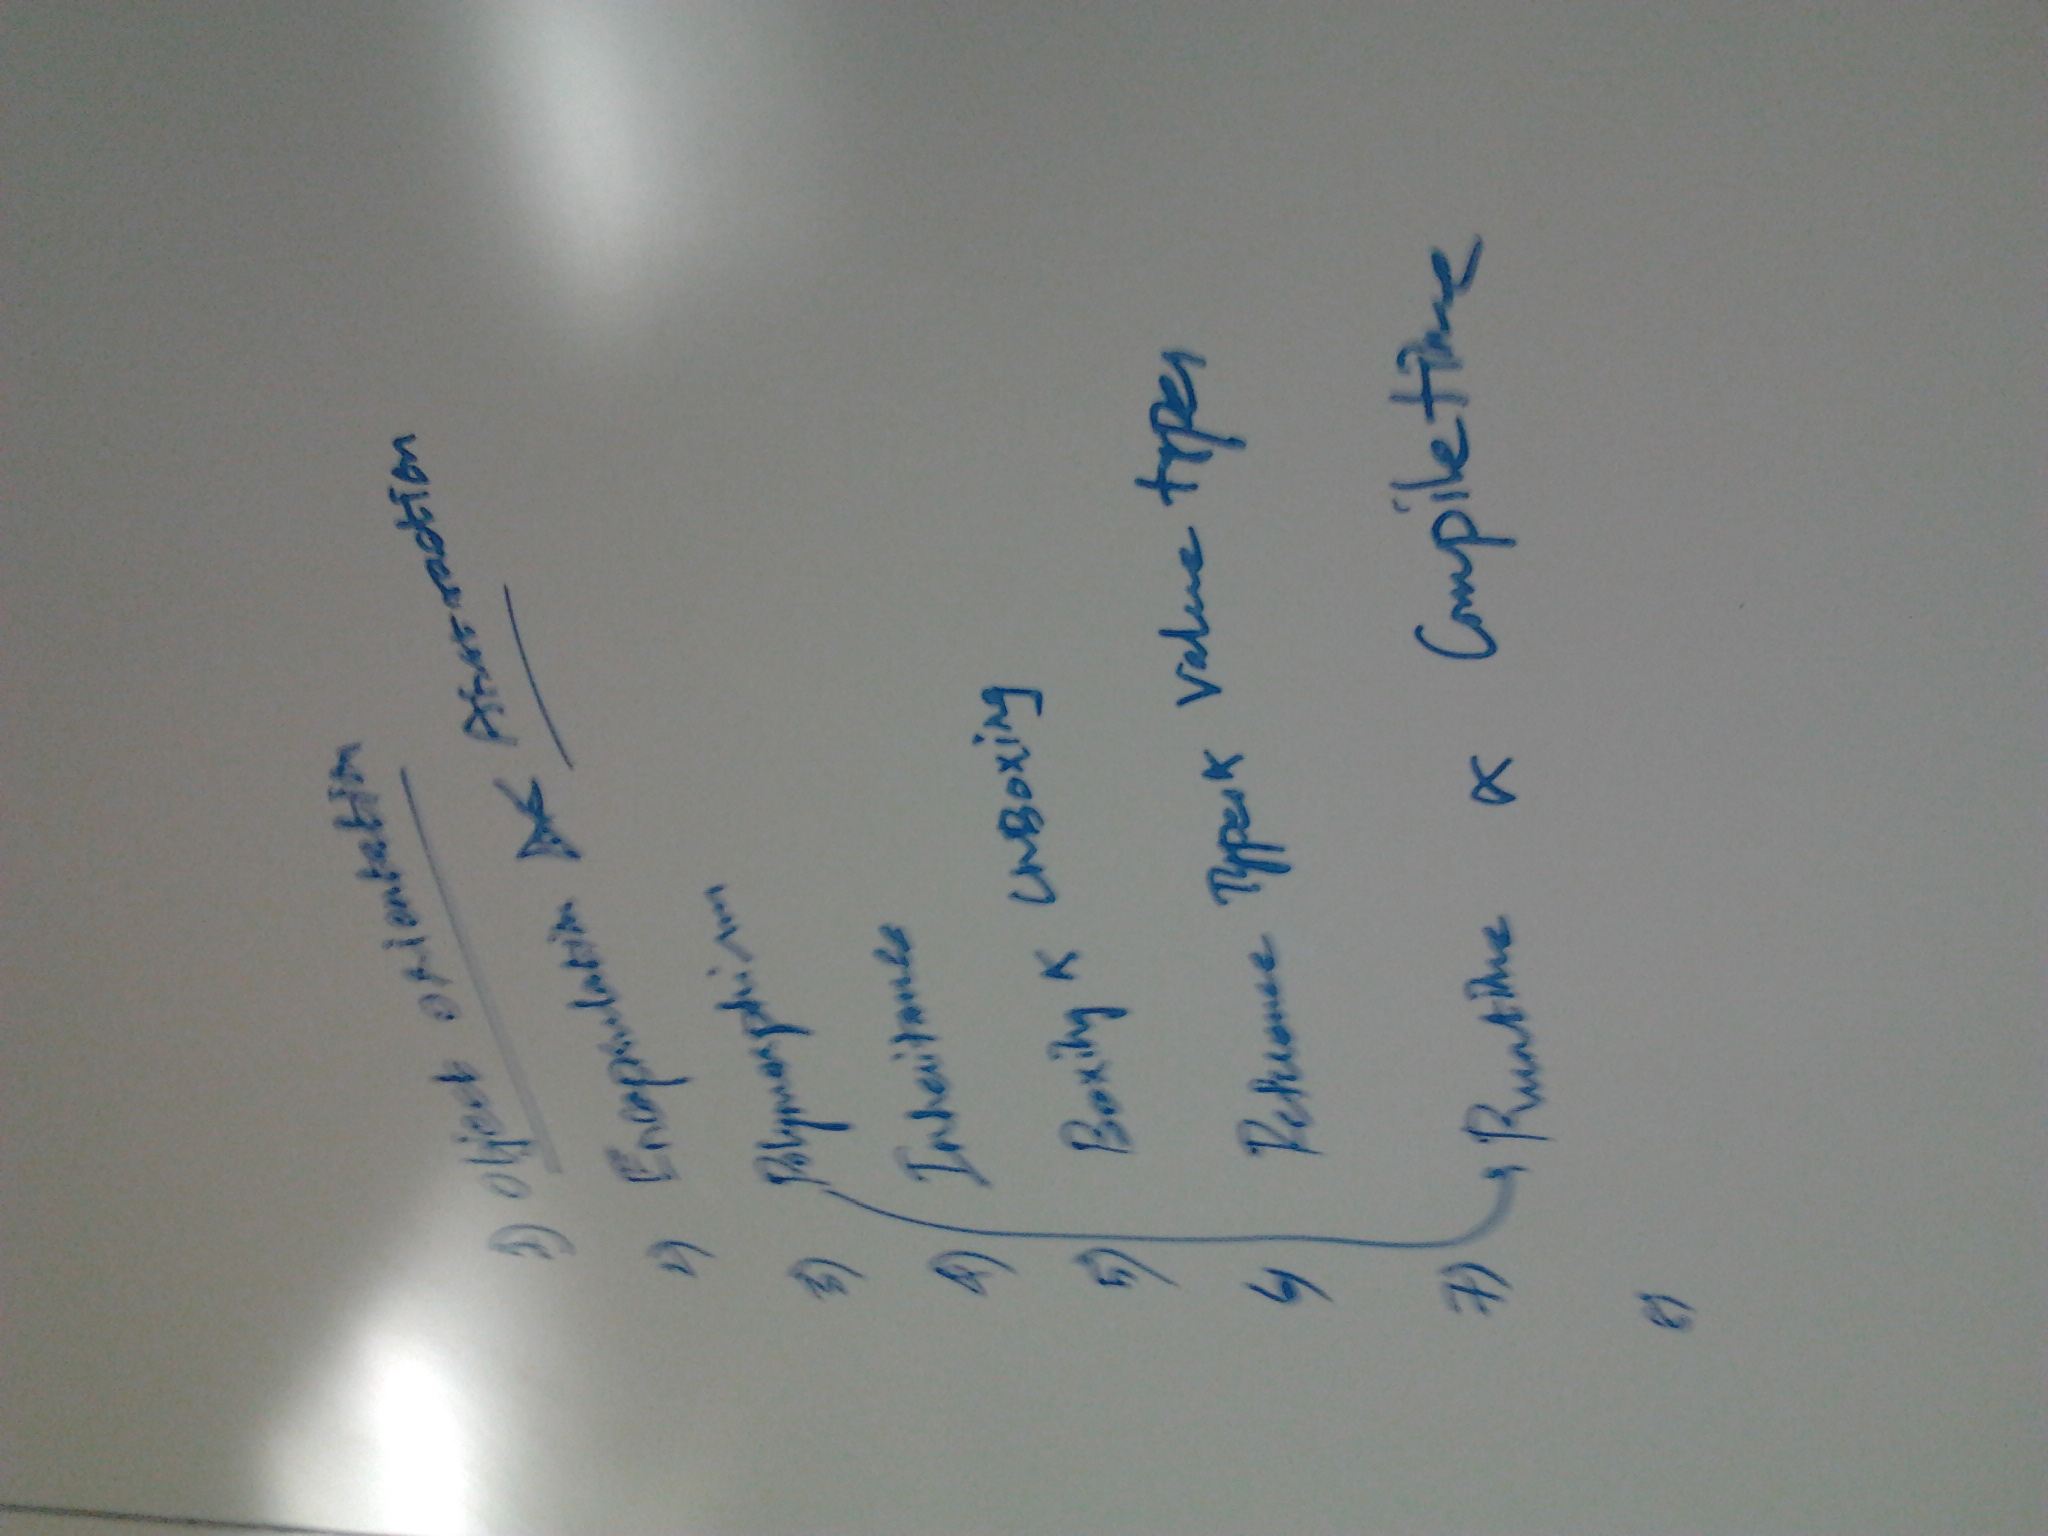 1) Object orientation
2) Encapsulation & Abstraction
3) Polymorphism
4) Inheritance
5) Boxing & UnBoxing
6) Reference Types & Value types
7) Runtime & Compile time
8)